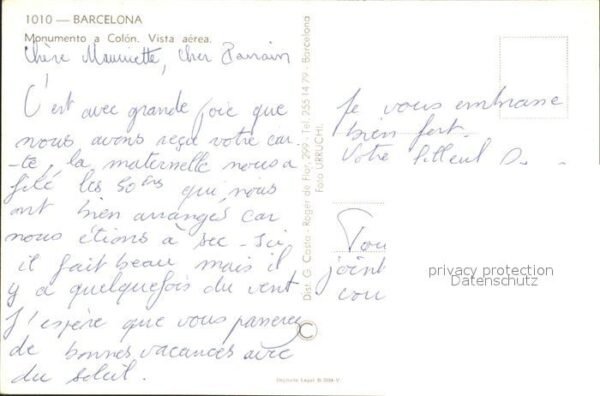 1010 — BARCELONA
Monumento a Colón. Vista aérea.
Chère Mauricette, cher Parrain
C'est avec grande joie que
nous avons reçu votre car-
-te, la maternelle nous a
filé les 50ens qui nous
ont bien arrangés car
nous étions à sec - Ici
il fait beau mais il
y a quelquefois du vent
J'espère que vous passerez
de bonnes vacances avec
du soleil.
Dist. G. Costa - Roger de Flor, 299 - Tel. 255 14 79 - Barcelona
Foto URRUCHI.
Je vous embrasse
bien fort.
Votre filleul D
joint
cou
privacy protection
Datenschutz